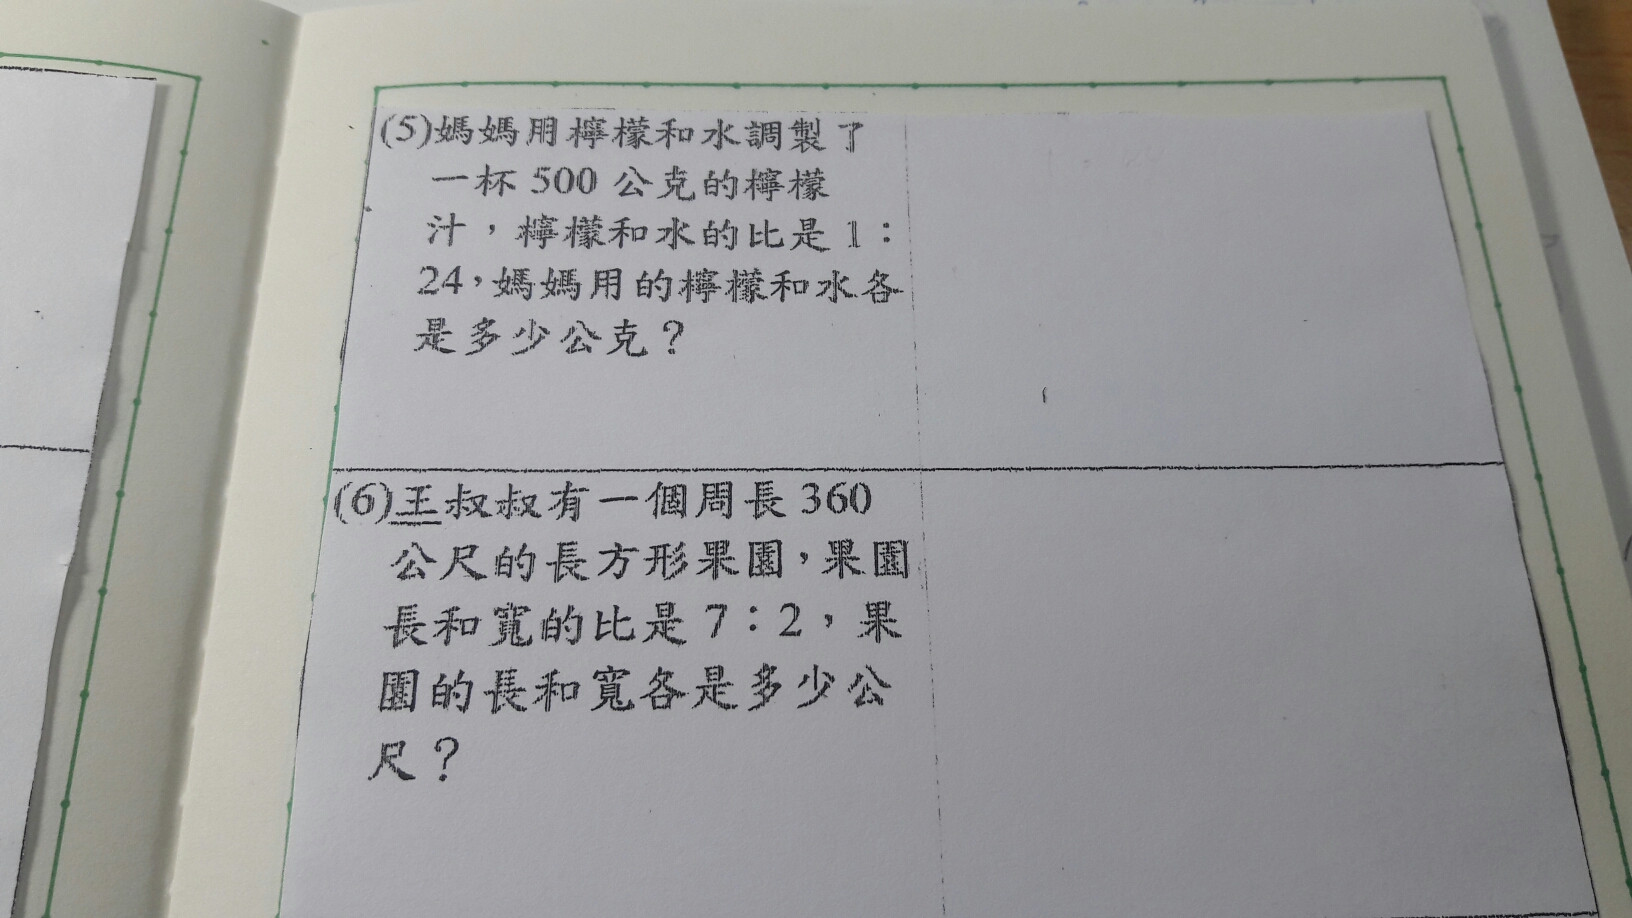 (5)媽媽用檸檬和水調製了
一杯 500 公克的檸檬
汁，檸檬和水的比是 1：
24，媽媽用的檸檬和水各
是多少公克？
(6)王叔叔有一個周長 360
公尺的長方形果園，果園
長和寬的比是 7：2，果
園的長和寬各是多少公
尺？